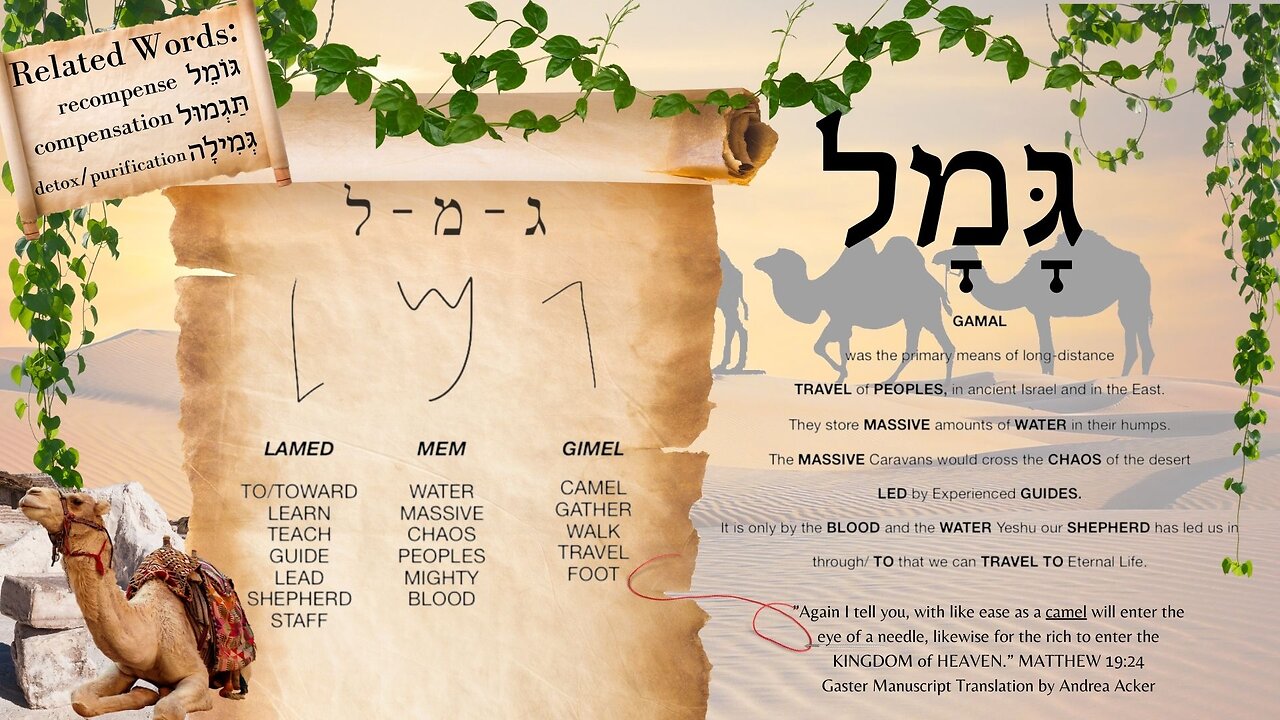 Related Words:
recompense גּוֹמֵל
compensation תַּגְמוּל
detox/ purification גְּמִילָה
ג - מ - ל
LAMED MEM GIMEL
TO/TOWARD WATER CAMEL
LEARN MASSIVE GATHER
TEACH CHAOS WALK
GUIDE PEOPLES TRAVEL
LEAD MIGHTY FOOT
SHEPHERD BLOOD
STAFF
גָּמָל
GAMAL
was the primary means of long-distance
TRAVEL of PEOPLES, in ancient Israel and in the East.
They store MASSIVE amounts of WATER in their humps.
The MASSIVE Caravans would cross the CHAOS of the desert
LED by Experienced GUIDES.
It is only by the BLOOD and the WATER Yeshu our SHEPHERD has led us in
through/ TO that we can TRAVEL TO Eternal Life.
"Again I tell you, with like ease as a camel will enter the
eye of a needle, likewise for the rich to enter the
KINGDOM of HEAVEN." MATTHEW 19:24
Gaster Manuscript Translation by Andrea Acker